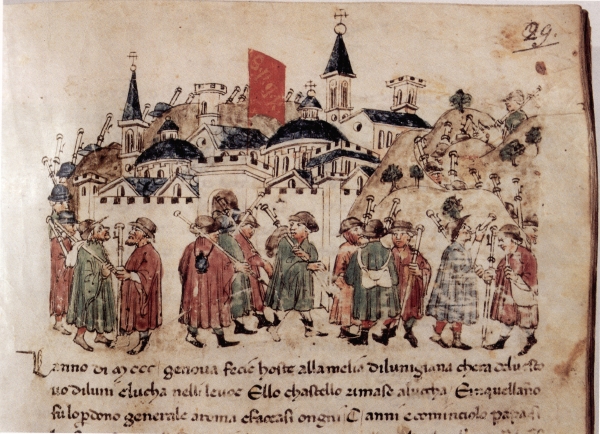 29.
Lanno di MCCC genova fecie hoste alla melia dilunigiana chera delvesco
vo diluni elucha nelli levoe Ello chastello rimase alucha Einquellanno
fu lo perdono generale aroma efaceasi ongni C anni ecominciolo papa